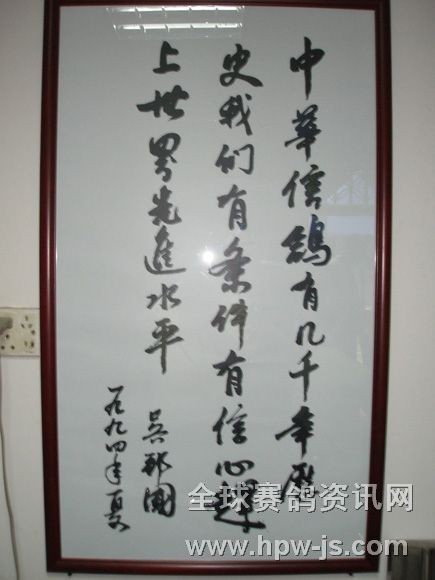 中華信鴿有几千年歷
史我们有条件有信心趕
上世界先進水平
吴邦國
一九九四年夏
全球赛鸽资讯网
www.hpw-js.com